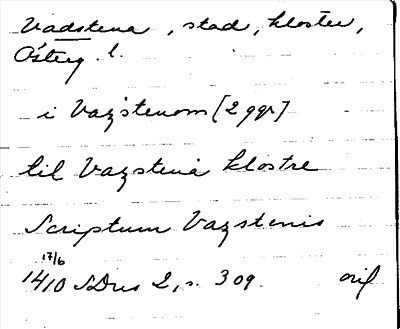 Vadstena, stad, kloster,
Österg. l.
i Vazstenom [2 ggr]
til Vazstena klostre
Scriptum Vazstenis
17/6
1410 SDns 2, s. 309 orig